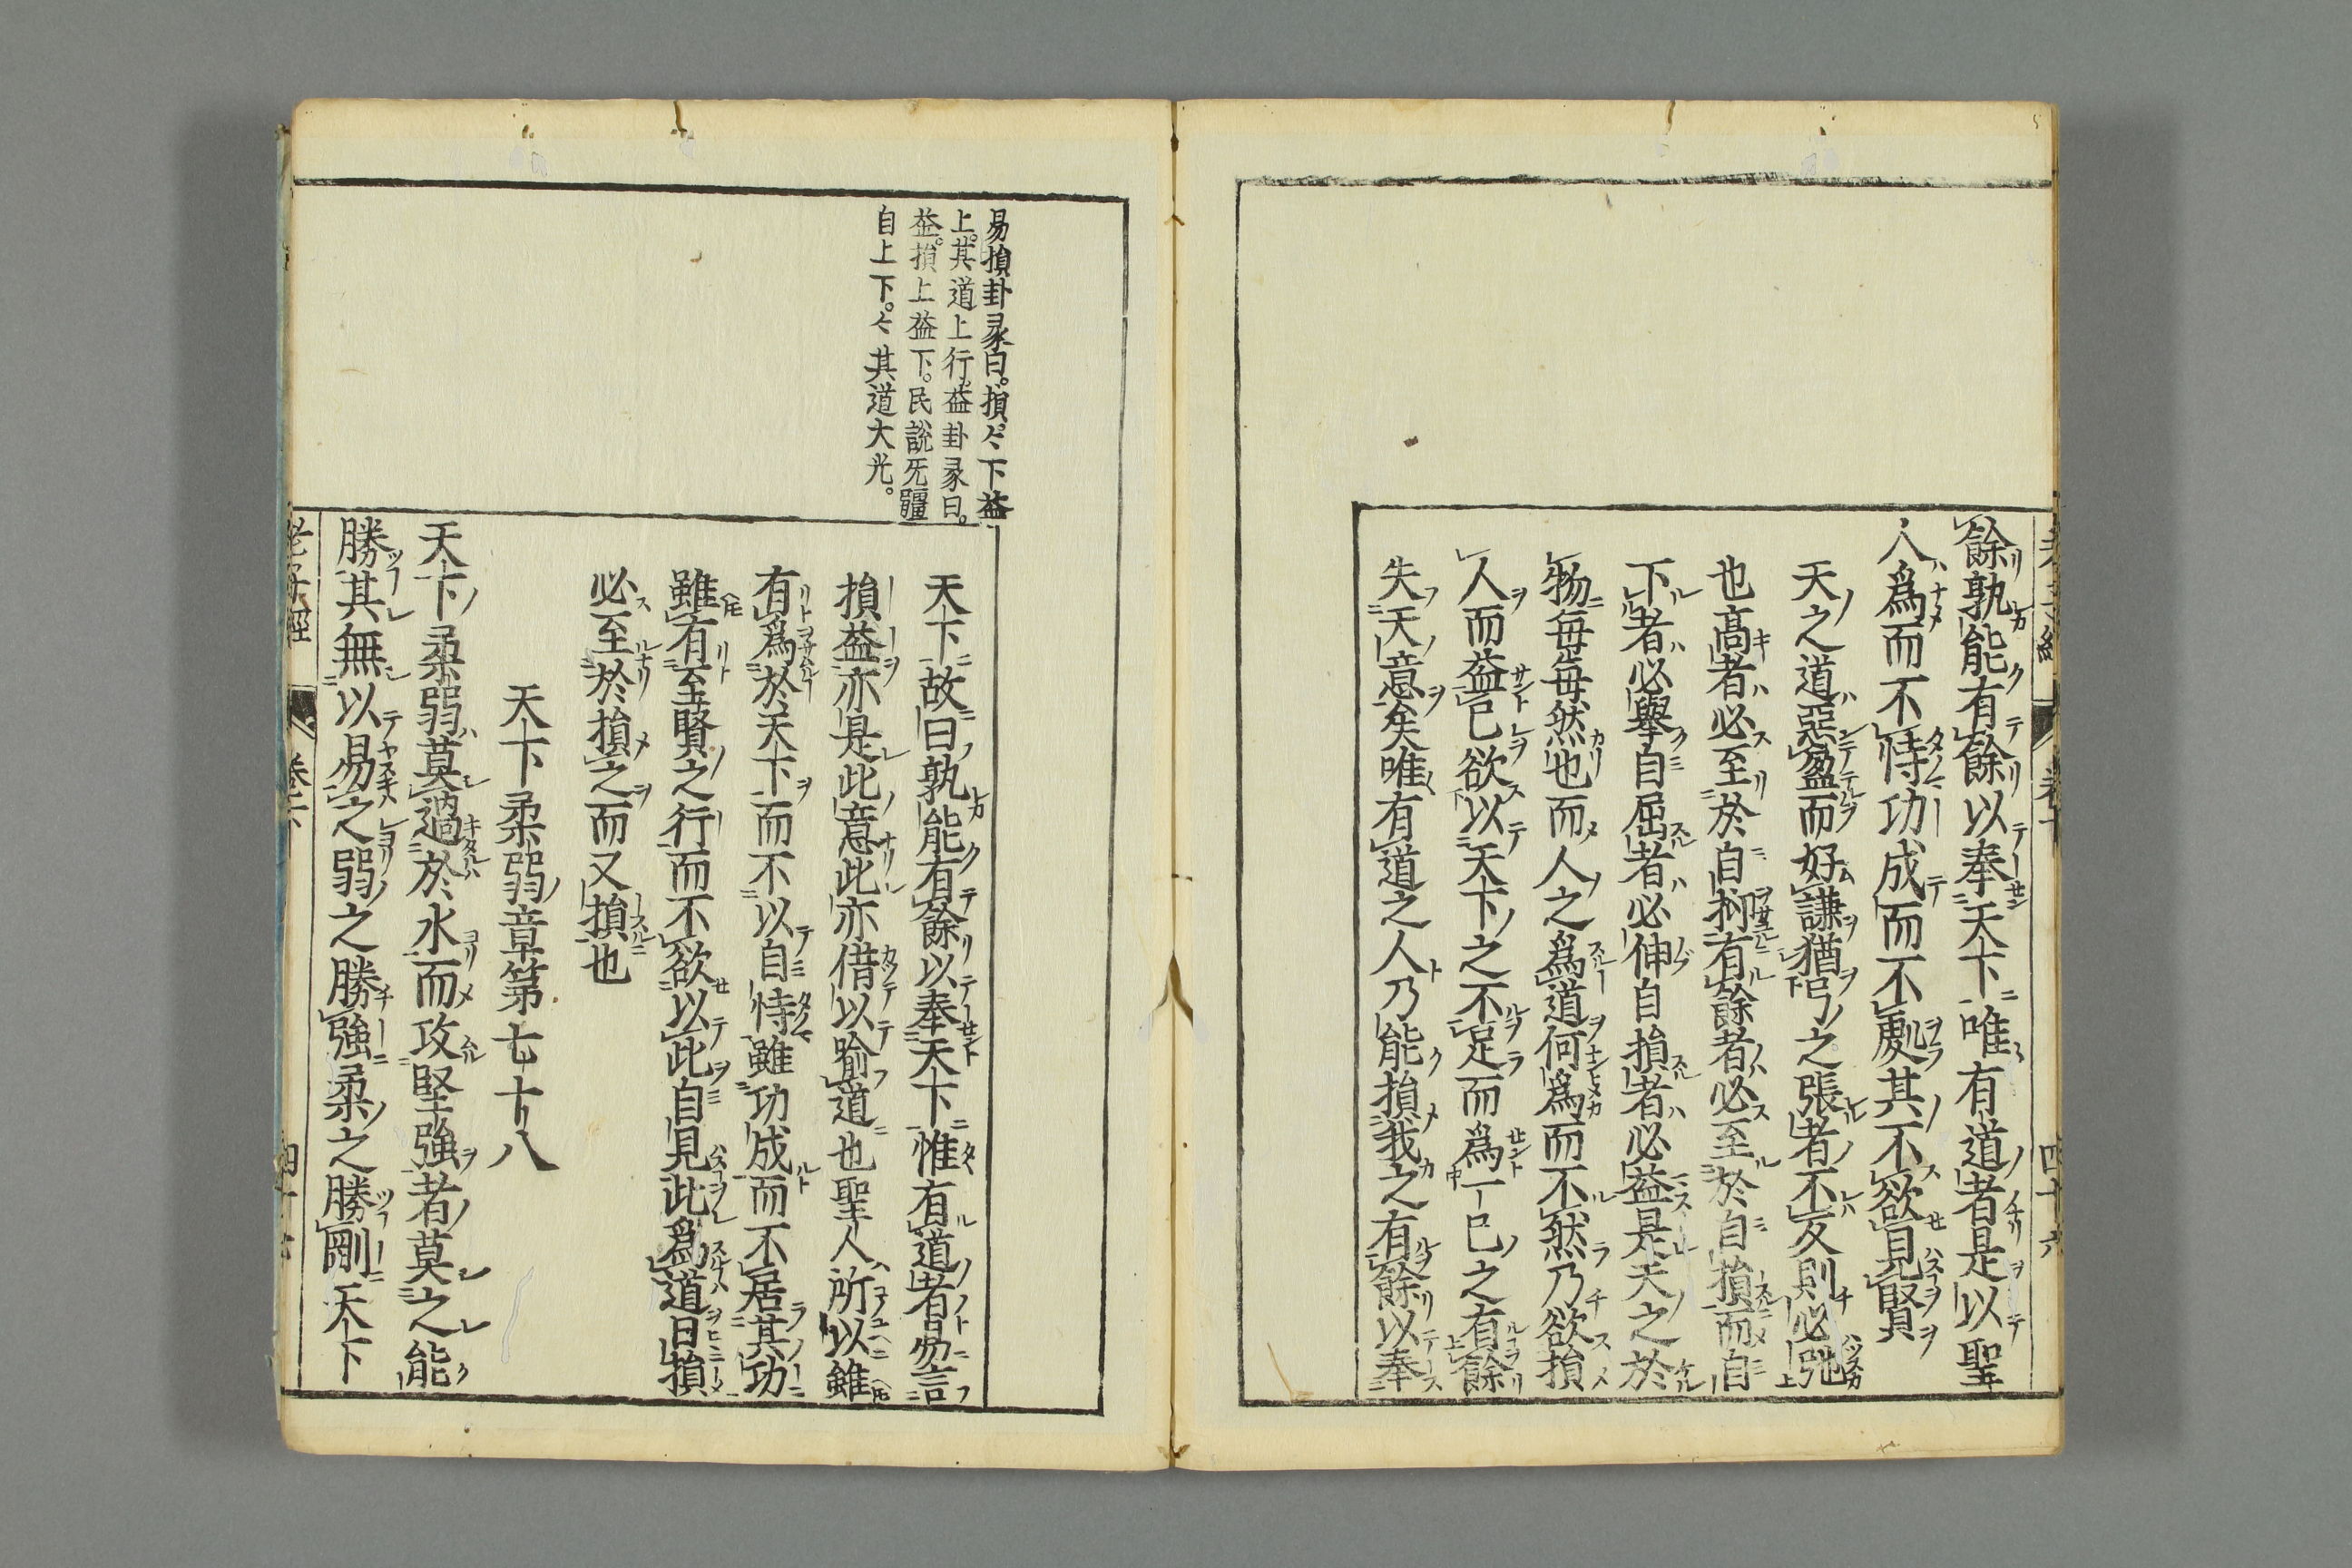 餘孰能有餘以奉天下唯有道者是以聖
人爲而不恃功成而不處其不欲見賢
天之道惡盈而好謙猶弓之張者不反則必弛
也高者必至於自抑有餘者必至於自損而自
下者必擧自屈者必伸自損者必益是天之於
物每每然也而人之爲道何爲而不然乃欲損
人而益己欲以天下之不足而爲一己之有餘
失天意矣唯有道之人乃能損我之有餘以奉
易損卦彖曰。損。〻下益
上。其道上行。益卦彖曰。
益。損上益下。民說无疆
自上下。〻其道大光。
天下故曰孰能有餘以奉天下惟有道者易言
損益亦是此意此亦借以喻道也聖人所以雖
有爲於天下而不以自恃雖功成而不居其功
雖有至賢之行而不欲以此自見此爲道日損
必至於損之而又損也
天下柔弱章第七十八
天下柔弱莫過於水而攻堅強者莫之能
勝其無以易之弱之勝強柔之勝剛天下